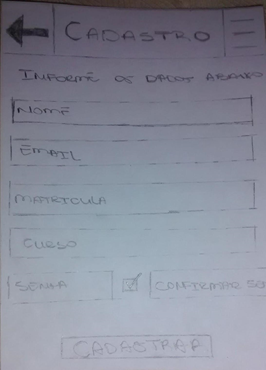 CADASTRO
INFORME OS DADOS ABAIXO
NOME
EMAIL
MATRICULA
CURSO
SENHA CONFIRMAR SE
CADASTRAR